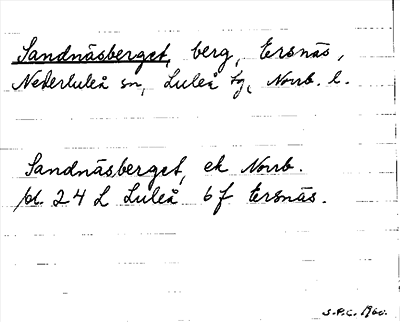 Sandnäsberget, berg, Ersnäs,
Nederluleå sn, Luleå tg, Norrb. l.
Sandnäsberget, ek Norrb.
bl. 24 L Luleå 6 f Ersnäs.
S.P.C. 1960.